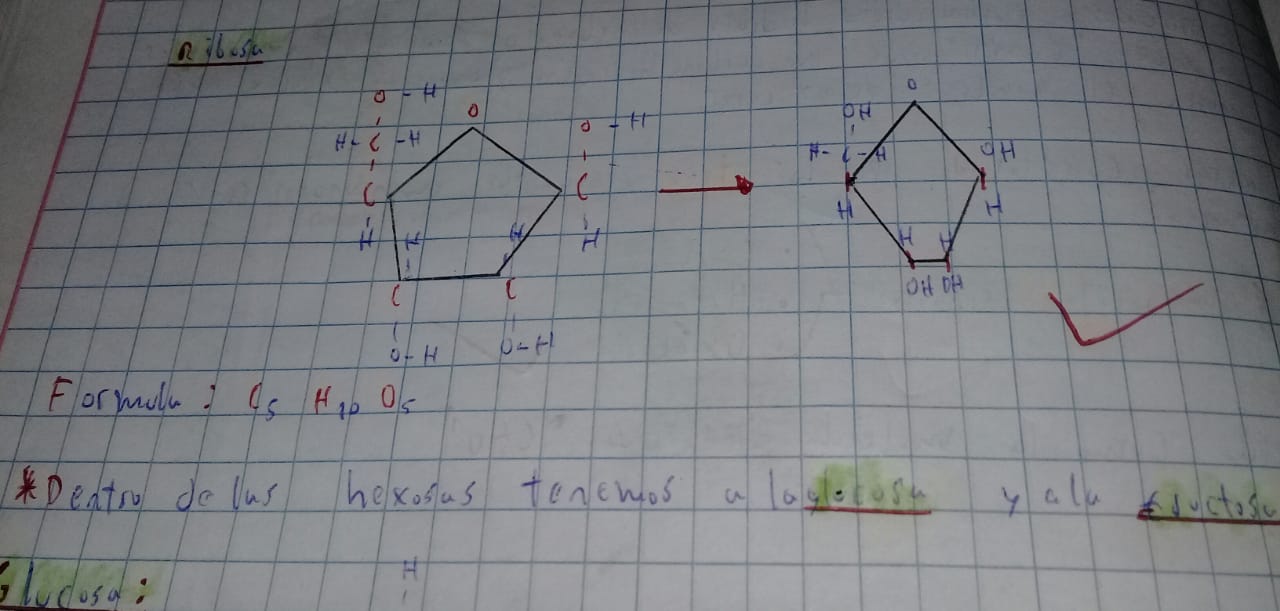 Ribosa
O - H
O
O - H
H - C - H
C
C
H
H
H
H
C
C
O - H
O - H
O
OH
H - C - H
OH
H
H
H
H
OH OH
Formula : C5 H10 O5
*Dentro de las hexosas tenemos a la glucosa y a la fructosa
Glucosa:
H